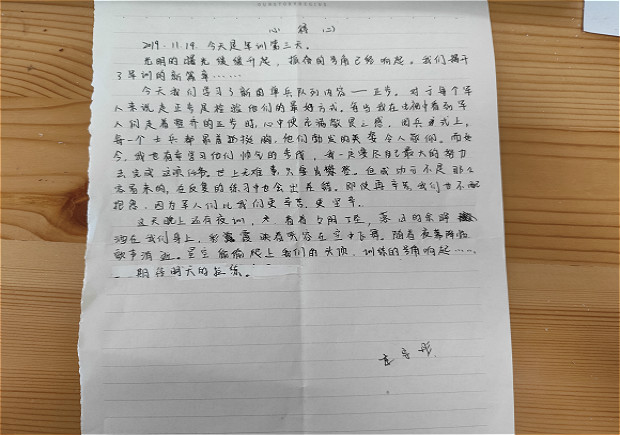 心得(二)
2019.11.19. 今天是军训第三天。
光明的曙光缓缓升起，振奋的号角已经响起。我们揭开
了军训的新篇章……
今天我们学习了新的单兵队列内容——正步。对于每个军
人来说是正步是检验他们的最好方式。每当我在电视中看到军
人们走着整齐的正步时，心中便充满敬畏之感，阅兵仪式上，
每一个士兵都昂首挺胸，他们勃发的英姿令人敬佩。而如
今，我也有幸学习他们帅气的步伐，我一定要尽自己最大的努力
去完成这项任务。世上无难事只要肯攀登。但成功可不是那么
容易来的，在反复的练习中也会出差错。即使再辛苦我们也不敢
抱怨，因为军人们比我们更辛苦，更坚辛。
这天晚上还有夜训，看着夕阳下坠，落日的余晖
洒在我们身上，彩霞映着笑容在空中飞舞。随着夜幕降临
歌声消逝。星空偷偷爬上我们的头顶，训练的号角响起……
期待明天的拉练。